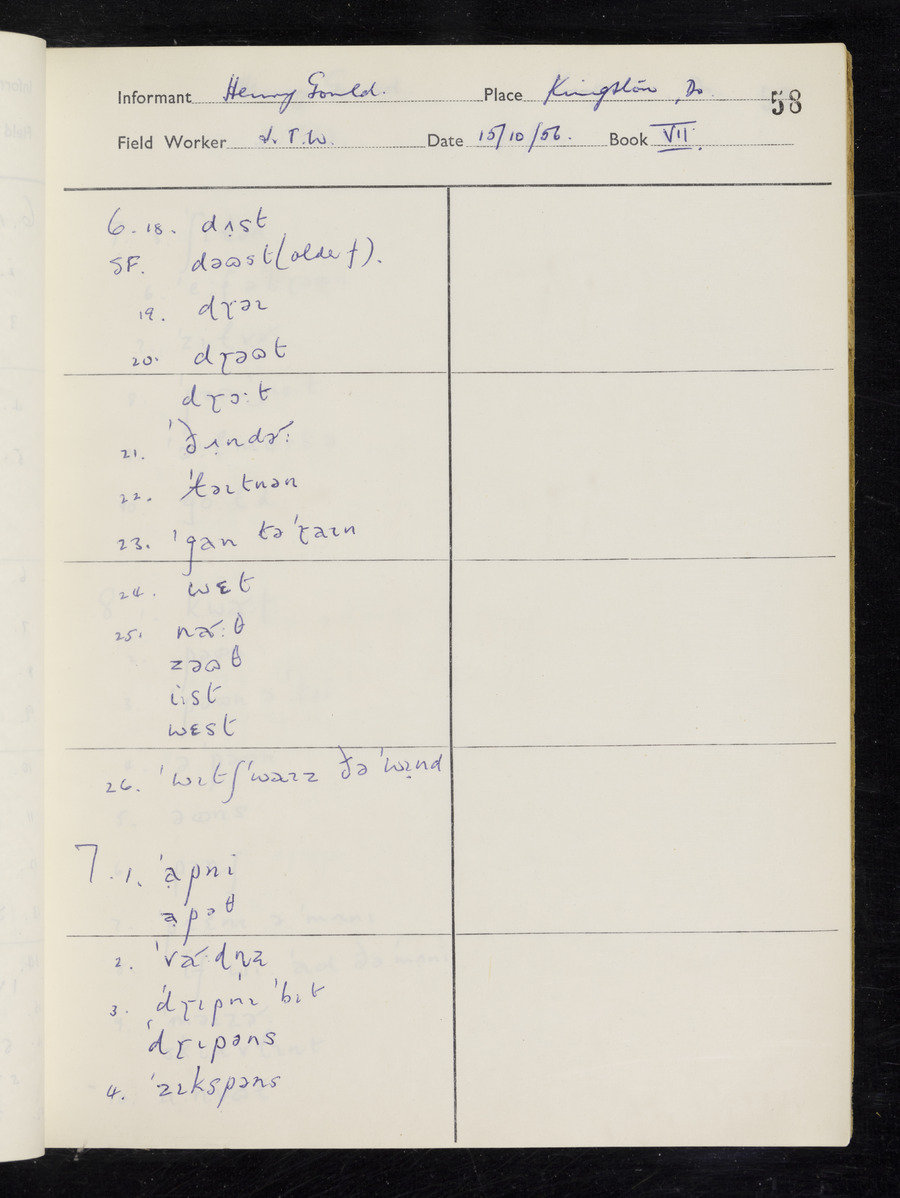 Informant Henry Gould. Place Kingston, Do. 58
Field Worker J.T.W. Date 15/10/56. Book VII.
6. 18. dʌst
SF. dəɷst (older f).
19. dɽəɪ
20. dɽəɷt
dɽɔ:t
21. 'ðʌndɚ:
22. 'təɪtnən
23. 'gan tə 'ɽaɪn
24. wɛt
25. nɚ:θ
zəɷθ
i:st
wɛst
26. 'wɪtʃ 'waɪz ðə 'wɪnd
7. 1. 'apni
apəθ
2. 'va:dn̩z
3. 'dɽɪpnɪ 'bɪt
'dɽɪpəns
4. 'zɪkspəns